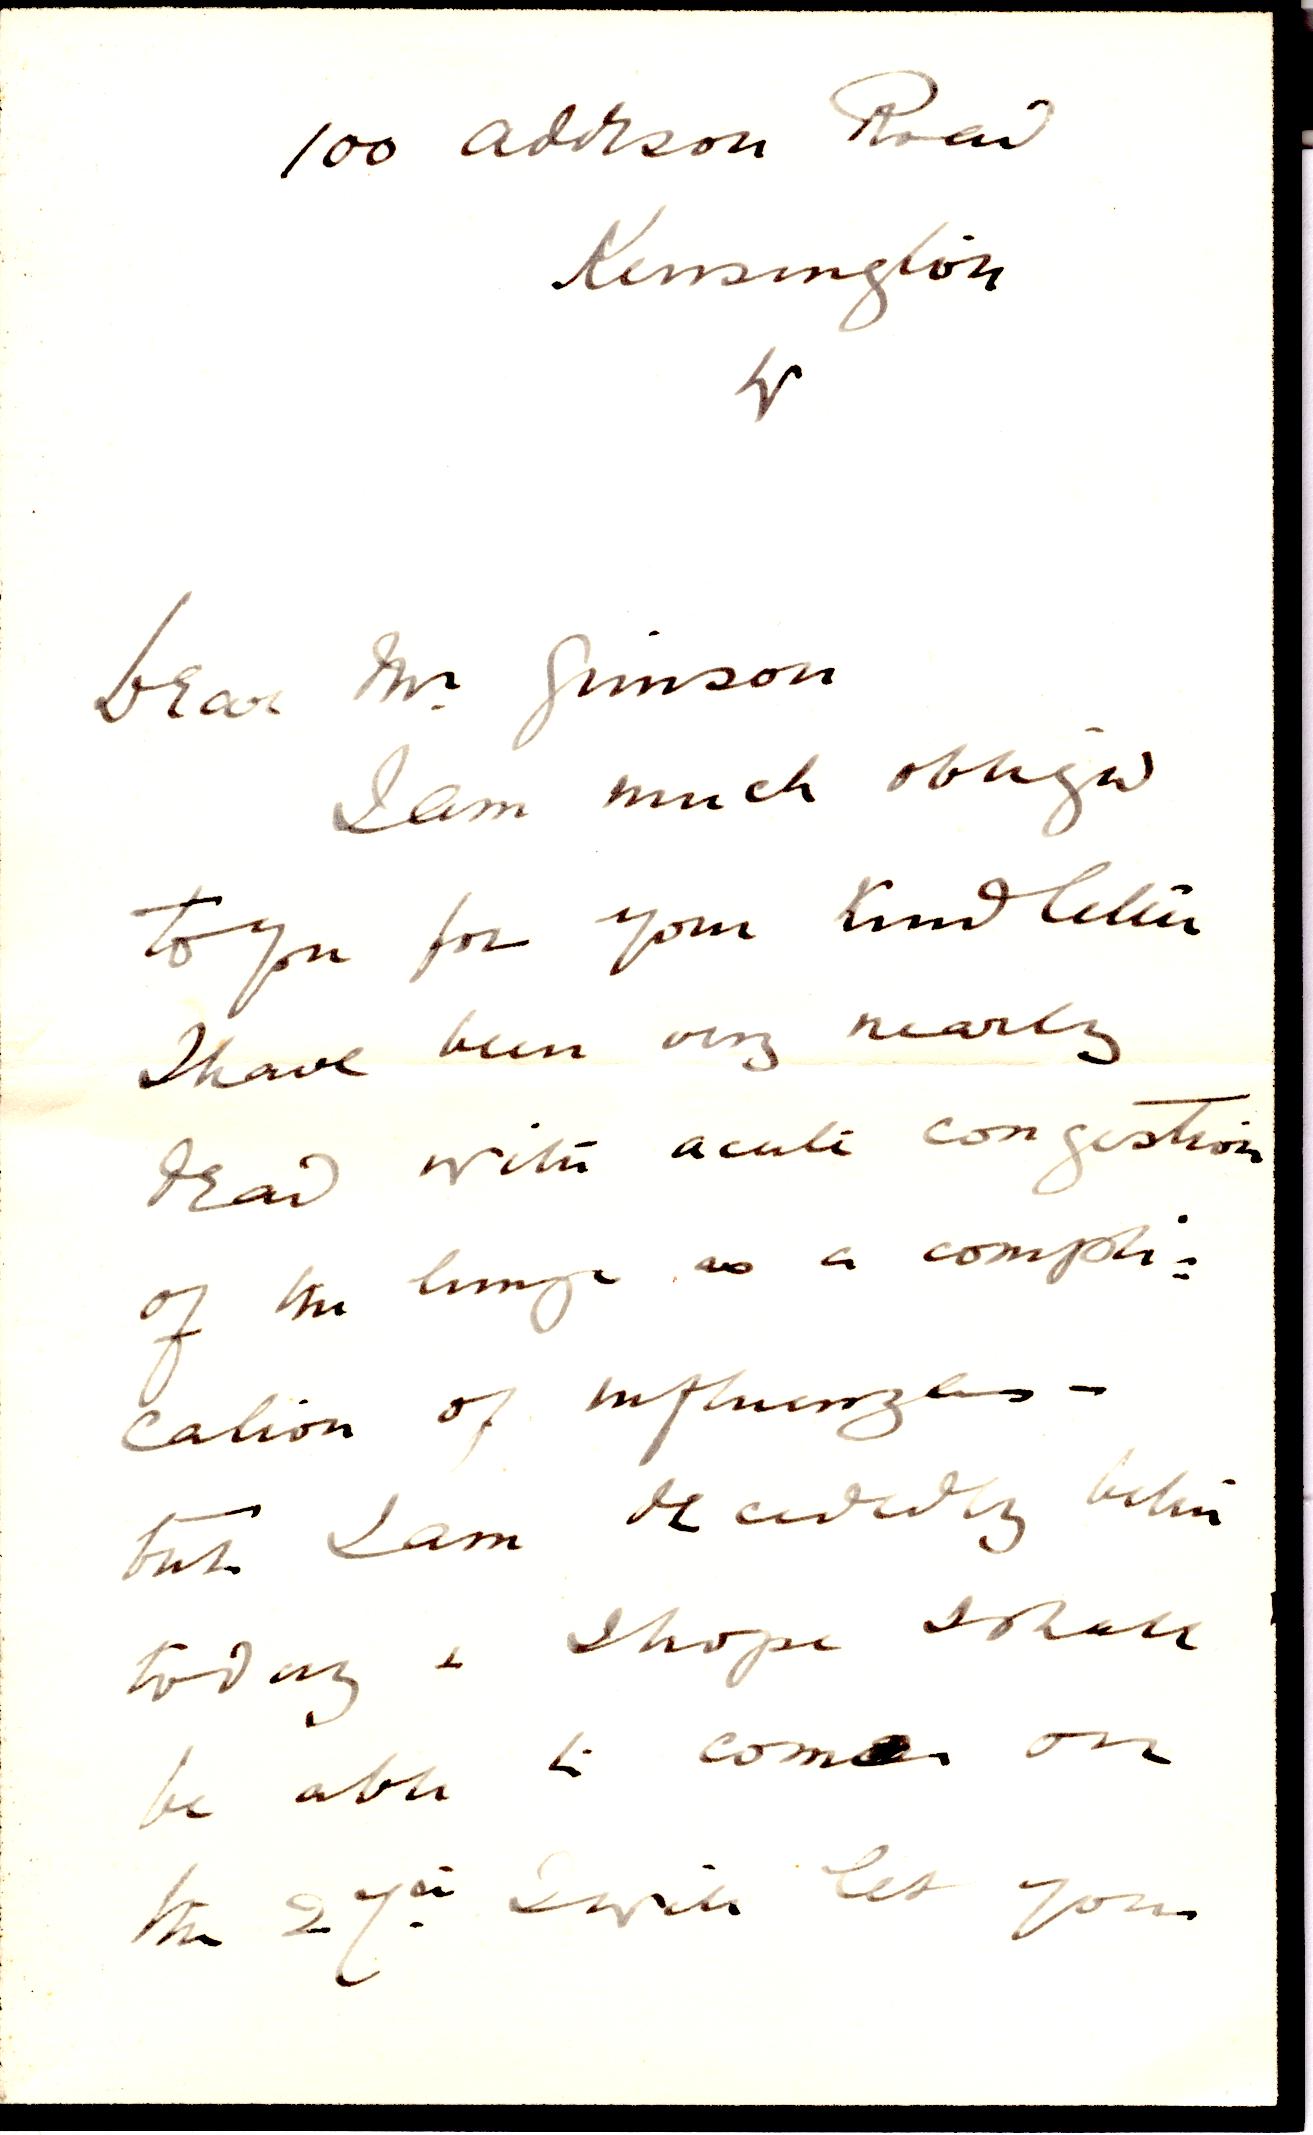 100 Addison Road
Kensington
W
Dear Mr. Gimson
I am much obliged
to you for your kind letter
I have been very nearly
dead with acute congestion
of the lungs as a compli=
cation of influenza -
but I am decidedly better
today & I hope I shall
be able to come on
the 27th. I will let you